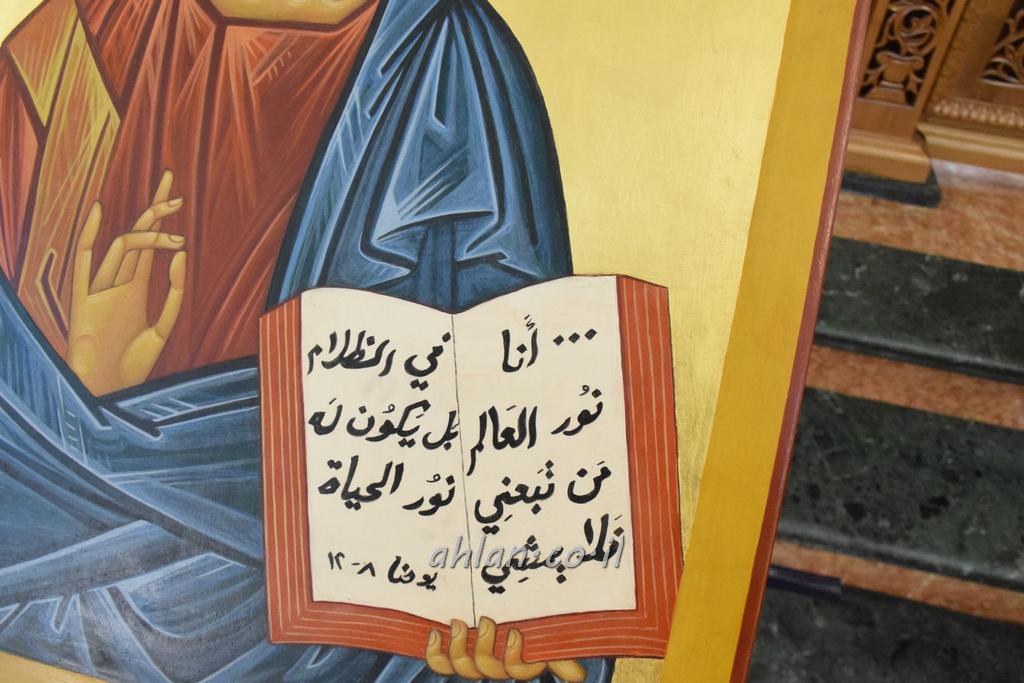 ... أَنا
نوُر العَالم
مَن تَبَعنِي
فَلا يمشِي
في الظلام
بَل يَكوُن لَه
نوُر الحياة
يوحنا ٨-١٢
ahlan.co.il